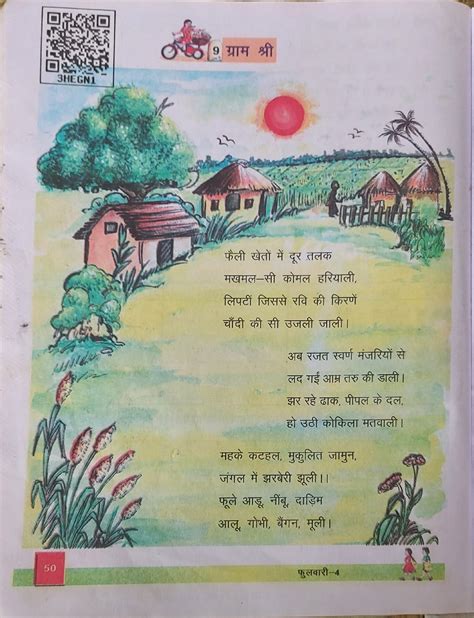 3HEGN1
9 ग्राम श्री
फैली खेतों में दूर तलक
मखमल–सी कोमल हरियाली,
लिपटीं जिससे रवि की किरणें
चाँदी की सी उजली जाली।
अब रजत स्वर्ण मंजरियों से
लद गई आम्र तरु की डाली।
झर रहे ढाक, पीपल के दल,
हो उठी कोकिला मतवाली।
महके कटहल, मुकुलित जामुन,
जंगल में झरबेरी झूली।।
फूले आडू, नींबू, दाड़िम
आलू, गोभी, बैंगन, मूली।
50
फुलवारी–4